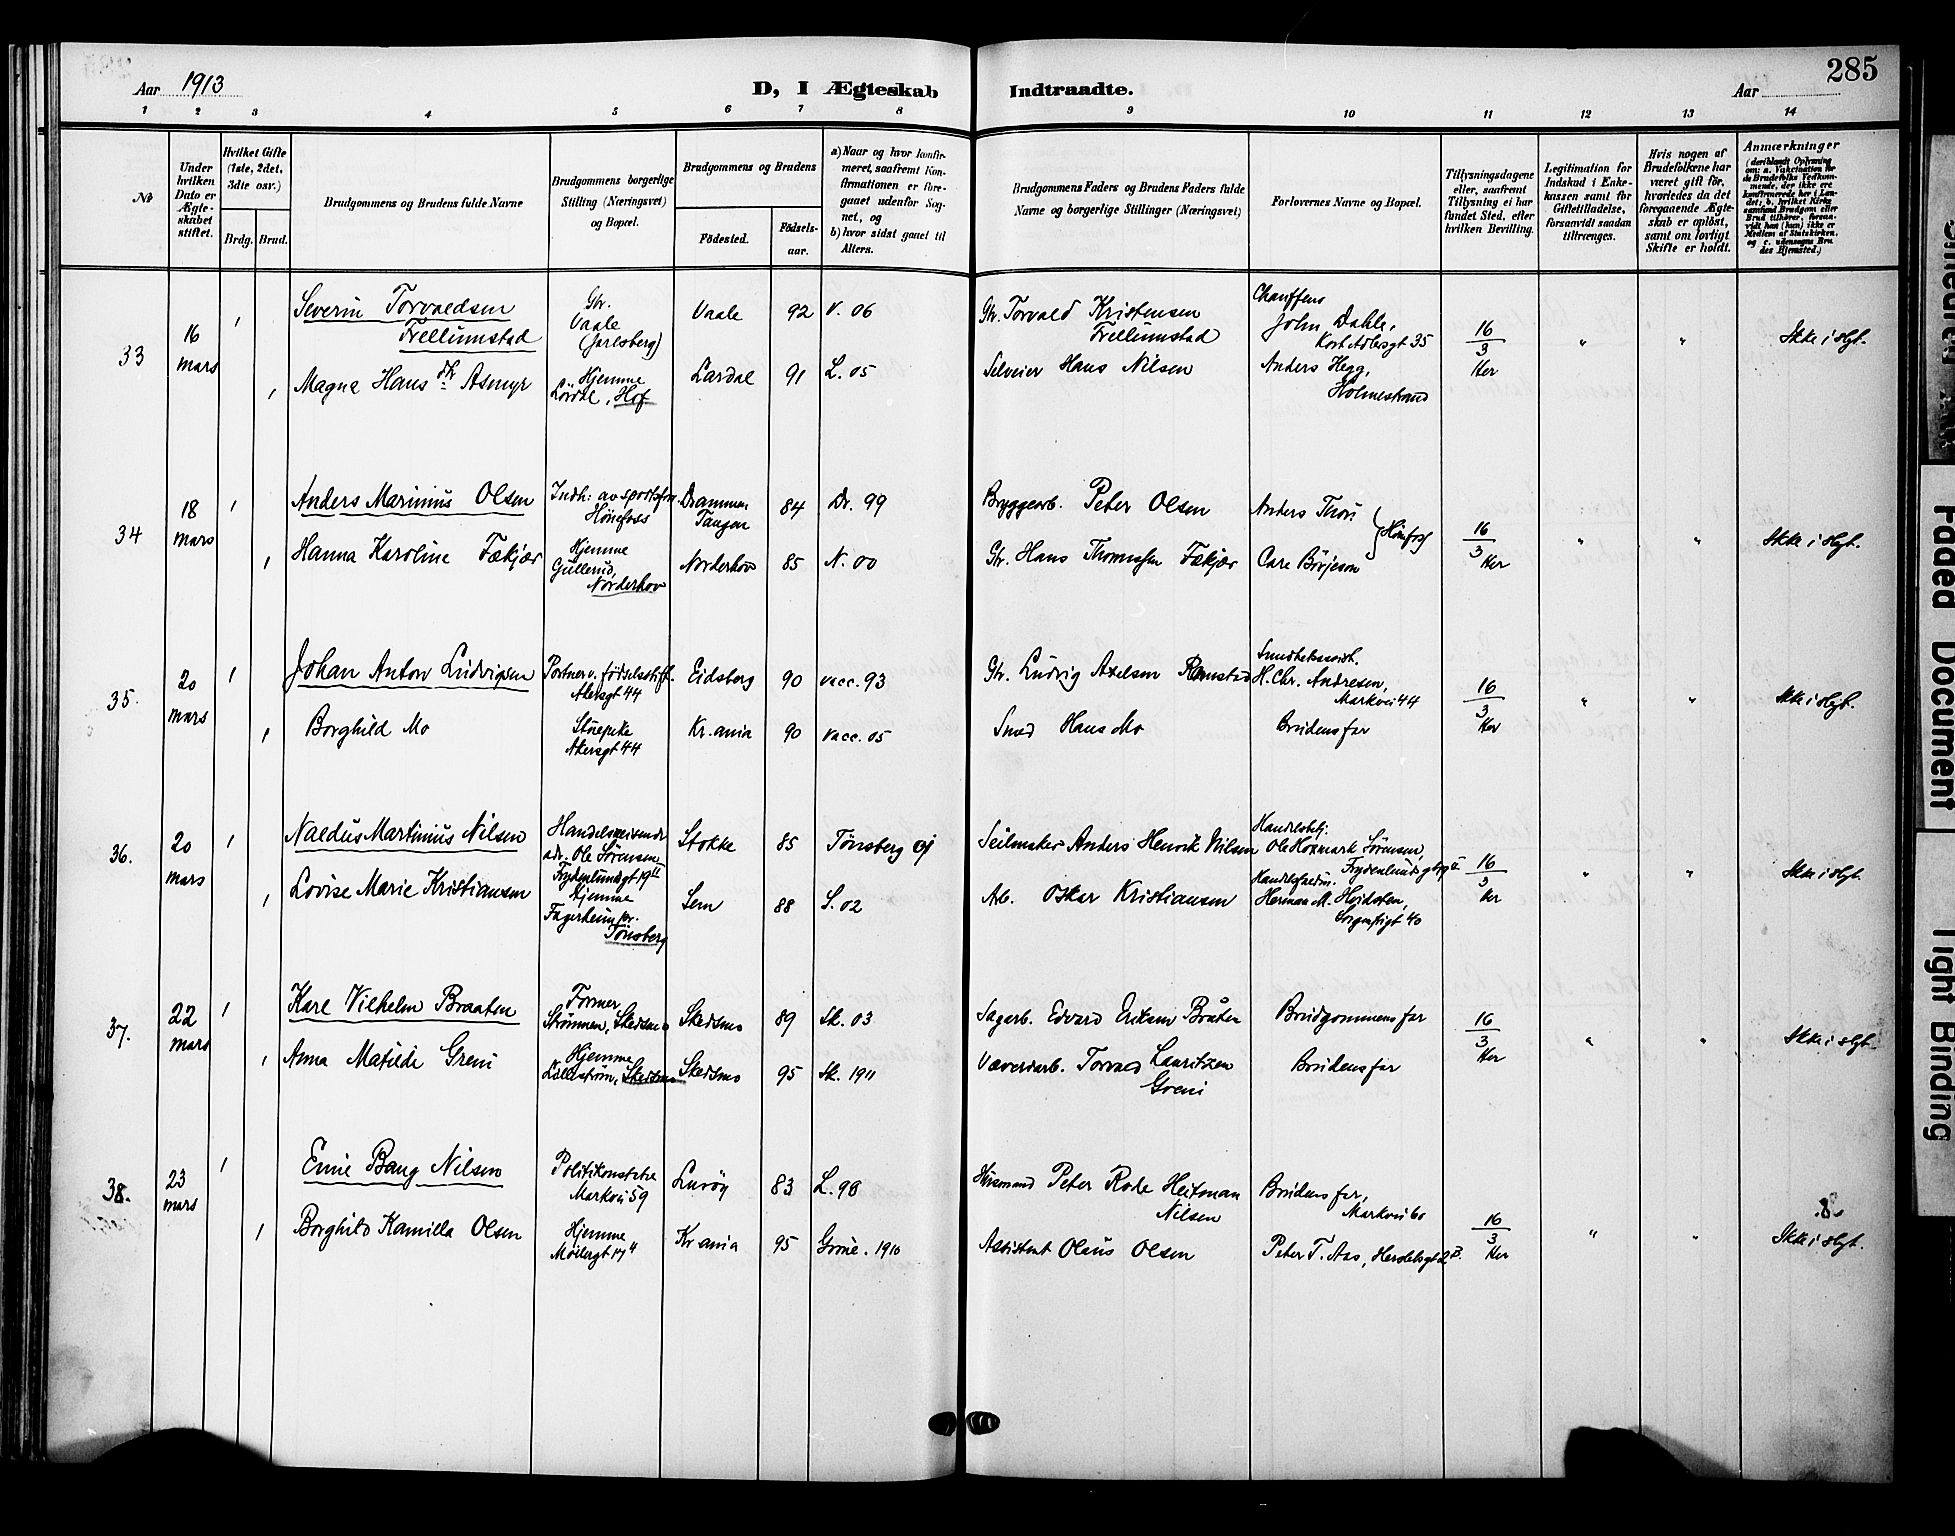 285
Aar 1913
D, I Ægteskab
Indtraadte.
Aar
1 2 3 4 5 6 7 8 9 10 11 12 13 14
No
Under hvilken Dato er Ægteskabet stiftet.
Hvilket Gifte (1ste, 2det, 3die osv.)
Brdg. Brud.
Brudgommens og Brudens fulde Navne
Brudgommens borgerlige Stilling (Næringsvei) og Bopæl.
Brudgommens og Brudens
Fødested.
Fødselsaar.
a) Naar og hvor konfirmeret, saafremt Konfirmationen er foregaaet udenfor Sognet, og
b) hvor sidst gaaet til Alters.
Brudgommens Faders og Brudens Faders fulde Navne og borgerlige Stillinger (Næringsvei)
Forlovernes Navne og Bopæl.
Tillysningsdagene eller, saafremt Tillysning ei har fundet Sted, efter hvilken Bevilling.
Legitimation for Indskud i Enkekassen samt for Giftetilladelse, forsaavidt saadan tiltrænges.
Hvis nogen af Brudefolkene har været gift før, hvorledes da det foregaaende Ægteskab er opløst, samt om lovligt Skifte er holdt.
Anmærkninger
(deriblandt Oplysning om: a. Vakcination for de Brudefolks Vedkommende, der ikke ere konfirmerede her i Landet; b. hvilket Kirkesamfund Brudgom eller Brud tilhører, forsaavidt han (hun) ikke er Medlem af Statskirken, og c. udensogns Brudes Hjemsted.)
33
16 mars
Severin Torvaldsen Frellumstad
Gbr. Vaale (Jarlsberg)
Vaale 92 V. 06
Gbr. Torvald Kristensen Frellumstad
Chauffeur John Dahle, Kort Adlesgt 35
16/3 Her
" "
Ikke i slgt.
Magna Hans dtr. Asmyr
Hjemme
Lardal 91 L. 05
Selveier Hans Nilsen
Anders Hegg, Holmestrand
34
18 mars
Anders Marinius Olsen
Indh: av sportsforr. Hönefoss
Drammen Tangen 84 Dr. 99
Bryggearb. Peter Olsen
Anders Thori
Hönefoss
16/3 Her
" "
Ikke i slgt.
Hanna Karoline Fækjær
Hjemme Gullerud, Norderhov
Norderhov 85 N. 00
Gbr. Hans Thomassen Fækjær
Carl Börjeson
35.
20 mars
Johan Anton Ludvigsen
Portner v. fødselsstift. Akersgt 44
Eidsberg 90 vacc. 93
Gbr. Ludvig Axelsen Ramstad
H. Chr. Andresen, Markvei 44
16/3 Her
" "
Ikke i slgt.
Borghild Mo
Stuepike Akersgt 44
Kr.ania 90 vacc. 05
Smed Hans Mo
Brudens far
36.
20 mars
Naldus Martinius Nilsen
Handelsreisende adr. Ole Sørensen, Frydenlundsgt 19 II
Stokke 85 Tønsberg 01
Seilmaker Anders Henrik Nilsen
Handelsbetj: Ole Hoxmark Sørensen, Frydenlundsgt 19
16/3 Her
" "
Ikke i slgt.
Lovise Marie Kristiansen
Hjemme Fagerheim pr. Tönsberg
Sem 88 S. 02
Arb. Oskar Kristiansen
Herman M. Hoidsten, Sorgenfrigt 40
37.
22 mars
Karl Vilhelm Braaten
Former Strømmen, Skedsmo
Skedsmo 89 Sk. 03
Sagarb. Edvard Eriksen Bråten
Brudgommens far
16/3 Her
" "
Ikke i slgt.
Anna Matilde Greni
Hjemme Lillestrøm, Skedsmo
Skedsmo 95 Sk. 1911
Væveriarb. Torvald Lauritzen Greni
Brudens far
38.
23 mars
Emil Bang Nilsen
Politikonstabel Markvei 59
Lurøy 83 L. 98
Husmand Peter Rode Heitman Nilsen
Brudens far, Markvei 60
16/3 Her
" "
8
Ikke i slgt.
Borghild Kamilla Olsen
Hjemme
Kr.ania 95 Grüne. 1910
Assistent Olaus Olsen
Peter T. Aas, Herslebsgt 2 B.
Faded Document
Tight Binding